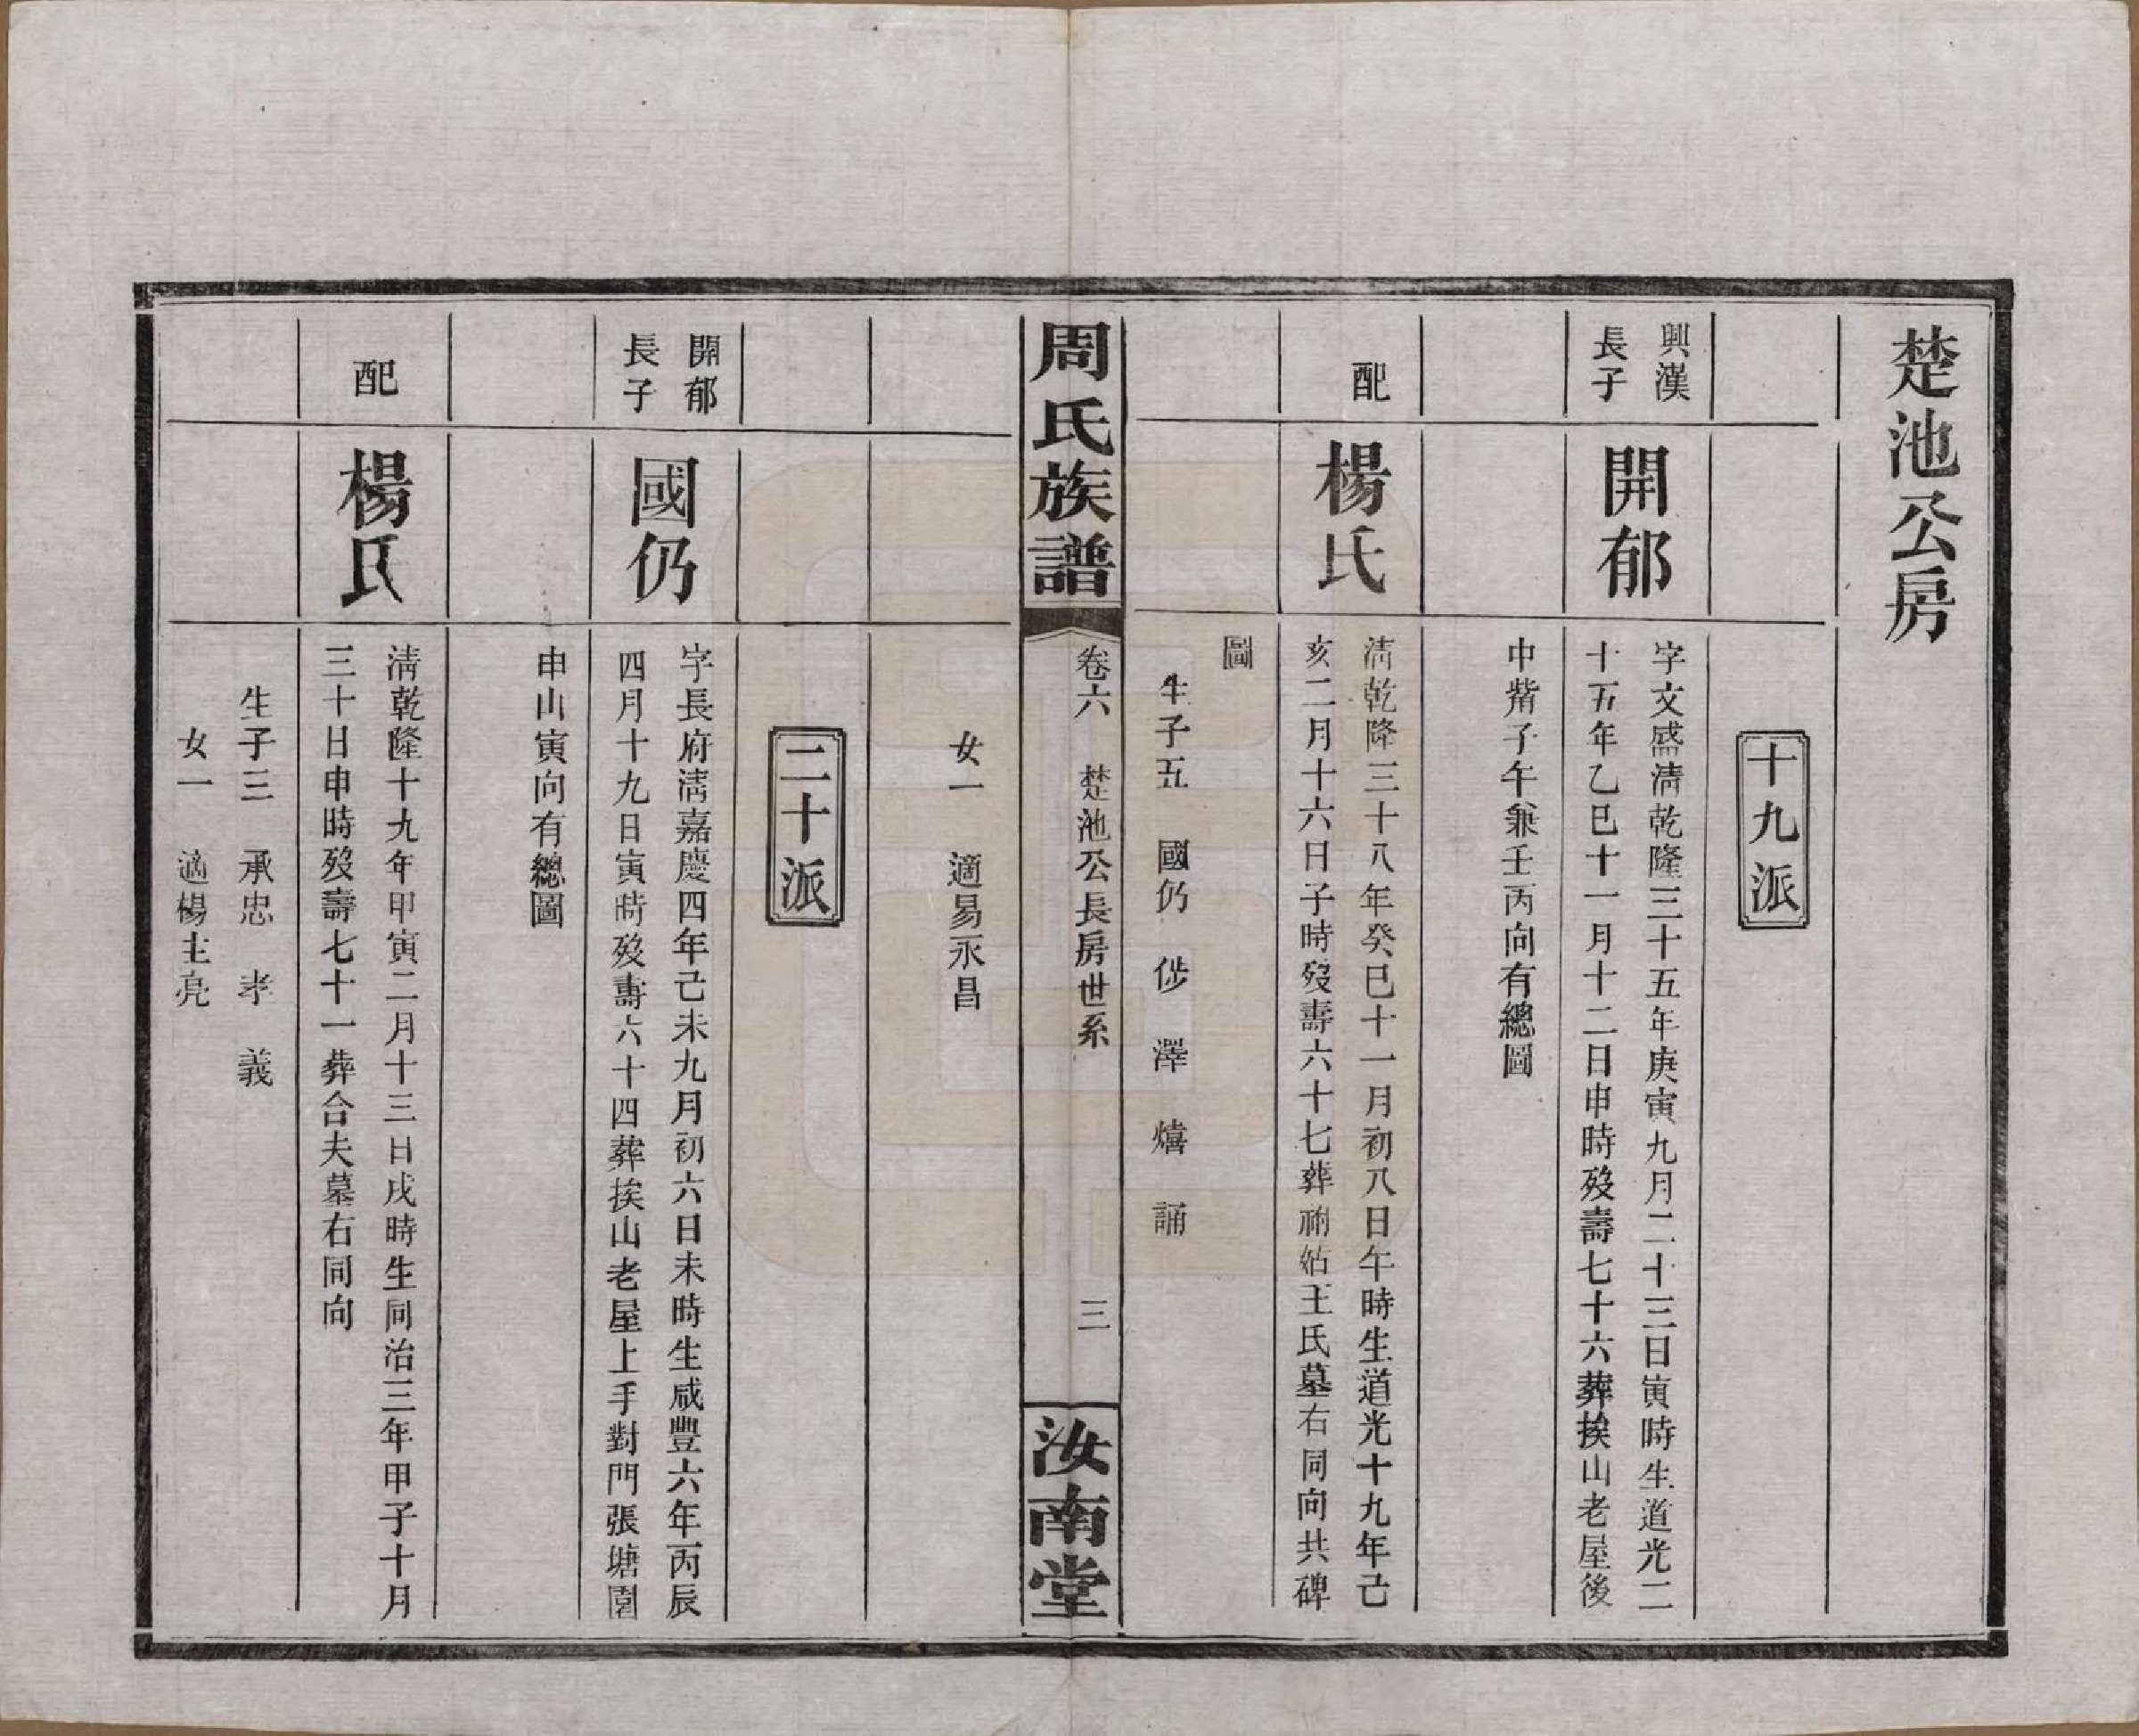 楚池公房
十九派
興漢
長子
開郁
字文盛清乾隆三十五年庚寅九月二十三日寅時生道光二
十五年乙巳十一月十二日申時歿壽七十六葬挨山老屋後
中觜子午兼壬丙向有總圖
配
楊氏
清乾隆三十八年癸巳十一月初八日午時生道光十九年己
亥二月十六日子時歿壽六十七葬祔姑王氏墓右同向共碑
圖
生子五 國仍 侇 澤 熺 誦
周氏族譜
卷六 楚池公長房世系
三
汝南堂
女一 適易永昌
二十派
開郁
長子
國仍
字長府清嘉慶四年己未九月初六日未時生咸豐六年丙辰
四月十九日寅時歿壽六十四葬挨山老屋上手對門張塘園
申山寅向有總圖
配
楊氏
清乾隆十九年甲寅二月十三日戌時生同治三年甲子十月
三十日申時歿壽七十一葬合夫墓右同向
生子三 承忠 孝 義
女一 適楊主亮